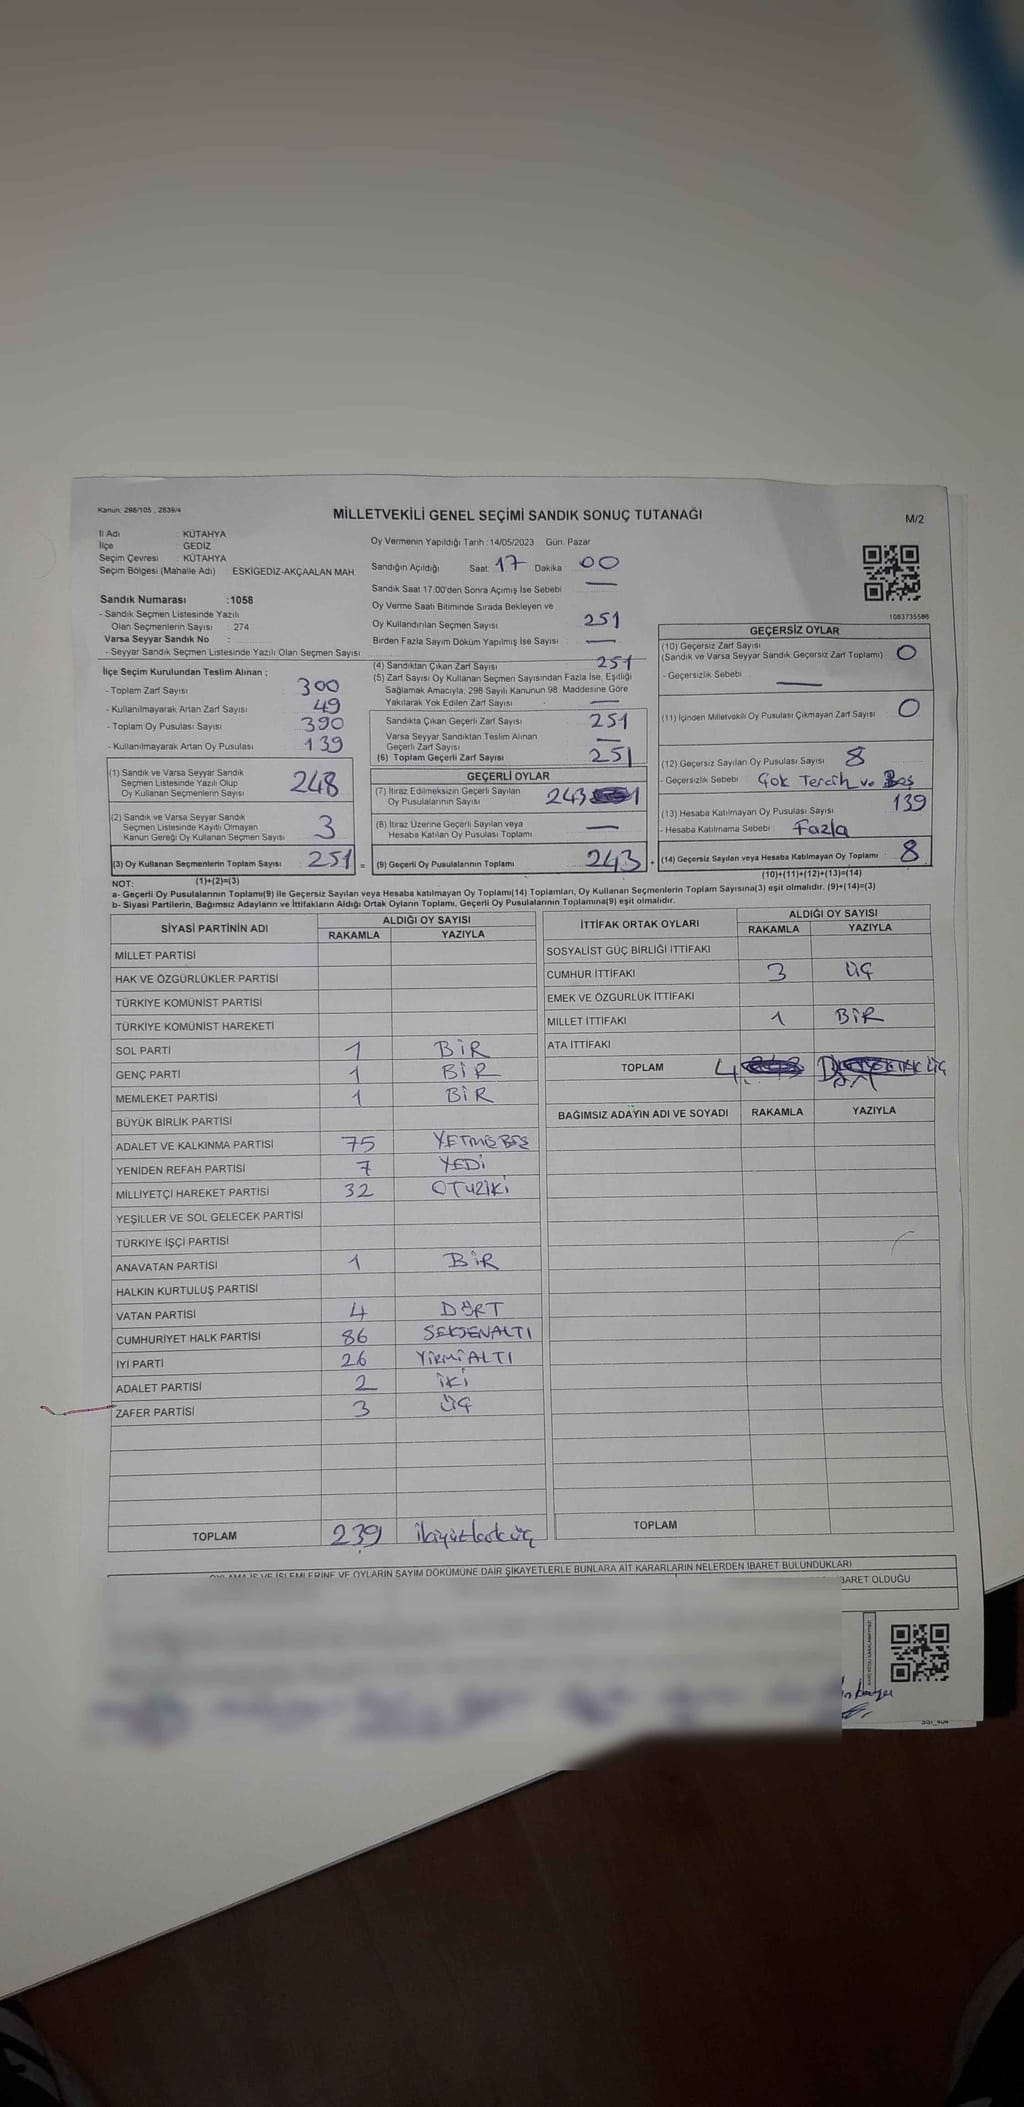 Kanun: 298/105 , 2839/4
MİLLETVEKİLİ GENEL SEÇİMİ SANDIK SONUÇ TUTANAĞI
M/2
İl Adı : KÜTAHYA
İlçe : GEDİZ
Seçim Çevresi : KÜTAHYA
Seçim Bölgesi (Mahalle Adı) ESKİGEDİZ-AKÇAALAN MAH
Sandık Numarası :1058
- Sandık Seçmen Listesinde Yazılı
Olan Seçmenlerin Sayısı : 274
Varsa Seyyar Sandık No :
- Seyyar Sandık Seçmen Listesinde Yazılı Olan Seçmen Sayısı
Oy Vermenin Yapıldığı Tarih : 14/05/2023 Gün: Pazar
Sandığın Açıldığı Saat: 17 Dakika 00
Sandık Saat 17.00'den Sonra Açımış İse Sebebi —
Oy Verme Saati Bitiminde Sırada Bekleyen ve
Oy Kullandırılan Seçmen Sayısı 251
Birden Fazla Sayım Döküm Yapılmış İse Sayısı —
1083735566
İlçe Seçim Kurulundan Teslim Alınan ;
- Toplam Zarf Sayısı 300
- Kullanılmayarak Artan Zarf Sayısı 49
- Toplam Oy Pusulası Sayısı 390
- Kullanılmayarak Artan Oy Pusulası 139
(1) Sandık ve Varsa Seyyar Sandık
Seçmen Listesinde Yazılı Olup
Oy Kullanan Seçmenlerin Sayısı 248
(2) Sandık ve Varsa Seyyar Sandık
Seçmen Listesinde Kayıtlı Olmayan
Kanun Gereği Oy Kullanan Seçmen Sayısı 3
(3) Oy Kullanan Seçmenlerin Toplam Sayısı 251 =
(1)+(2)=(3)
(4) Sandıktan Çıkan Zarf Sayısı 251
(5) Zarf Sayısı Oy Kullanan Seçmen Sayısından Fazla İse, Eşitliği
Sağlamak Amacıyla, 298 Sayılı Kanunun 98. Maddesine Göre
Yakılarak Yok Edilen Zarf Sayısı —
Sandıkta Çıkan Geçerli Zarf Sayısı 251
Varsa Seyyar Sandıktan Teslim Alınan
Geçerli Zarf Sayısı —
(6) Toplam Geçerli Zarf Sayısı 251
GEÇERLİ OYLAR
(7) İtiraz Edilmeksizin Geçerli Sayılan
Oy Pusulalarının Sayısı 243
(8) İtiraz Üzerine Geçerli Sayılan veya
Hesaba Katılan Oy Pusulası Toplamı —
(9) Geçerli Oy Pusulalarının Toplamı 243 +
GEÇERSİZ OYLAR
(10) Geçersiz Zarf Sayısı
(Sandık ve Varsa Seyyar Sandık Geçersiz Zarf Toplamı) 0
- Geçersizlik Sebebi —
(11) İçinden Milletvekili Oy Pusulası Çıkmayan Zarf Sayısı 0
(12) Geçersiz Sayılan Oy Pusulası Sayısı 8
- Geçersizlik Sebebi Çok Tercih ve Boş
(13) Hesaba Katılmayan Oy Pusulası Sayısı 139
- Hesaba Katılmama Sebebi Fazla
(14) Geçersiz Sayılan veya Hesaba Katılmayan Oy Toplamı 8
(10)+(11)+(12)+(13)=(14)
NOT:
a- Geçerli Oy Pusulalarının Toplamı(9) ile Geçersiz Sayılan veya Hesaba katılmayan Oy Toplamı(14) Toplamları, Oy Kullanan Seçmenlerin Toplam Sayısına(3) eşit olmalıdır. (9)+(14)=(3)
b- Siyasi Partilerin, Bağımsız Adayların ve İttifakların Aldığı Ortak Oyların Toplamı, Geçerli Oy Pusulalarının Toplamına(9) eşit olmalıdır.
SİYASİ PARTİNİN ADI
ALDIĞI OY SAYISI
RAKAMLA YAZIYLA
MİLLET PARTİSİ
HAK VE ÖZGÜRLÜKLER PARTİSİ
TÜRKİYE KOMÜNİST PARTİSİ
TÜRKİYE KOMÜNİST HAREKETİ
SOL PARTİ 1 BİR
GENÇ PARTİ 1 BİR
MEMLEKET PARTİSİ 1 BİR
BÜYÜK BİRLİK PARTİSİ
ADALET VE KALKINMA PARTİSİ 75 YETMİŞBEŞ
YENİDEN REFAH PARTİSİ 7 YEDİ
MİLLİYETÇİ HAREKET PARTİSİ 32 OTUZİKİ
YEŞİLLER VE SOL GELECEK PARTİSİ
TÜRKİYE İŞÇİ PARTİSİ
ANAVATAN PARTİSİ 1 BİR
HALKIN KURTULUŞ PARTİSİ
VATAN PARTİSİ 4 DÖRT
CUMHURİYET HALK PARTİSİ 86 SEKSENALTI
İYİ PARTİ 26 YİRMİALTI
ADALET PARTİSİ 2 İKİ
ZAFER PARTİSİ 3 ÜÇ
TOPLAM 239
İTTİFAK ORTAK OYLARI
ALDIĞI OY SAYISI
RAKAMLA YAZIYLA
SOSYALİST GÜÇ BİRLİĞİ İTTİFAKI
CUMHUR İTTİFAKI 3 ÜÇ
EMEK VE ÖZGÜRLÜK İTTİFAKI
MİLLET İTTİFAKI 1 BİR
ATA İTTİFAKI
TOPLAM 4
BAĞIMSIZ ADAYIN ADI VE SOYADI RAKAMLA YAZIYLA
TOPLAM
OYLAMA İŞ VE İŞLEMLERİNE VE OYLARIN SAYIM DÖKÜMÜNE DAİR ŞİKAYETLERLE BUNLARA AİT KARARLARIN NELERDEN İBARET BULUNDUKLARI
İBARET OLDUĞU